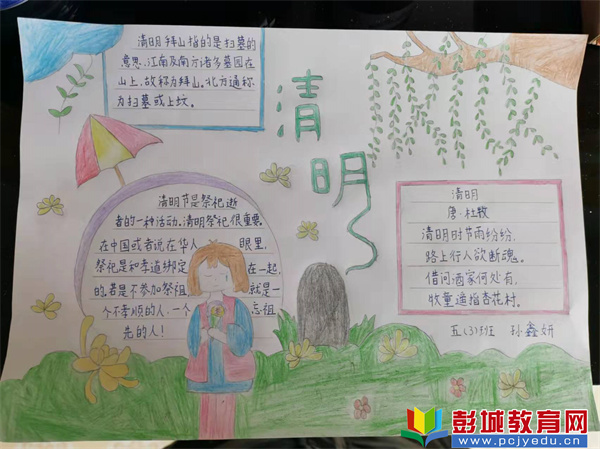 清明拜山指的是扫墓的
意思,江南及南方诸多墓园在
山上,故称为拜山。北方通称
为扫墓或上坟。
清明
清明节是祭祀逝
者的一种活动。清明祭祀很重要。
在中国或者说在华人眼里,
祭祀是和孝道绑定在一起
的,若是不参加祭祖就是一
个不孝顺的人,一个忘祖
先的人!
清明
唐·杜牧
清明时节雨纷纷,
路上行人欲断魂。
借问酒家何处有,
牧童遥指杏花村。
五(3)班 孙鑫妍
彭城教育网
www.pcjyedu.cn